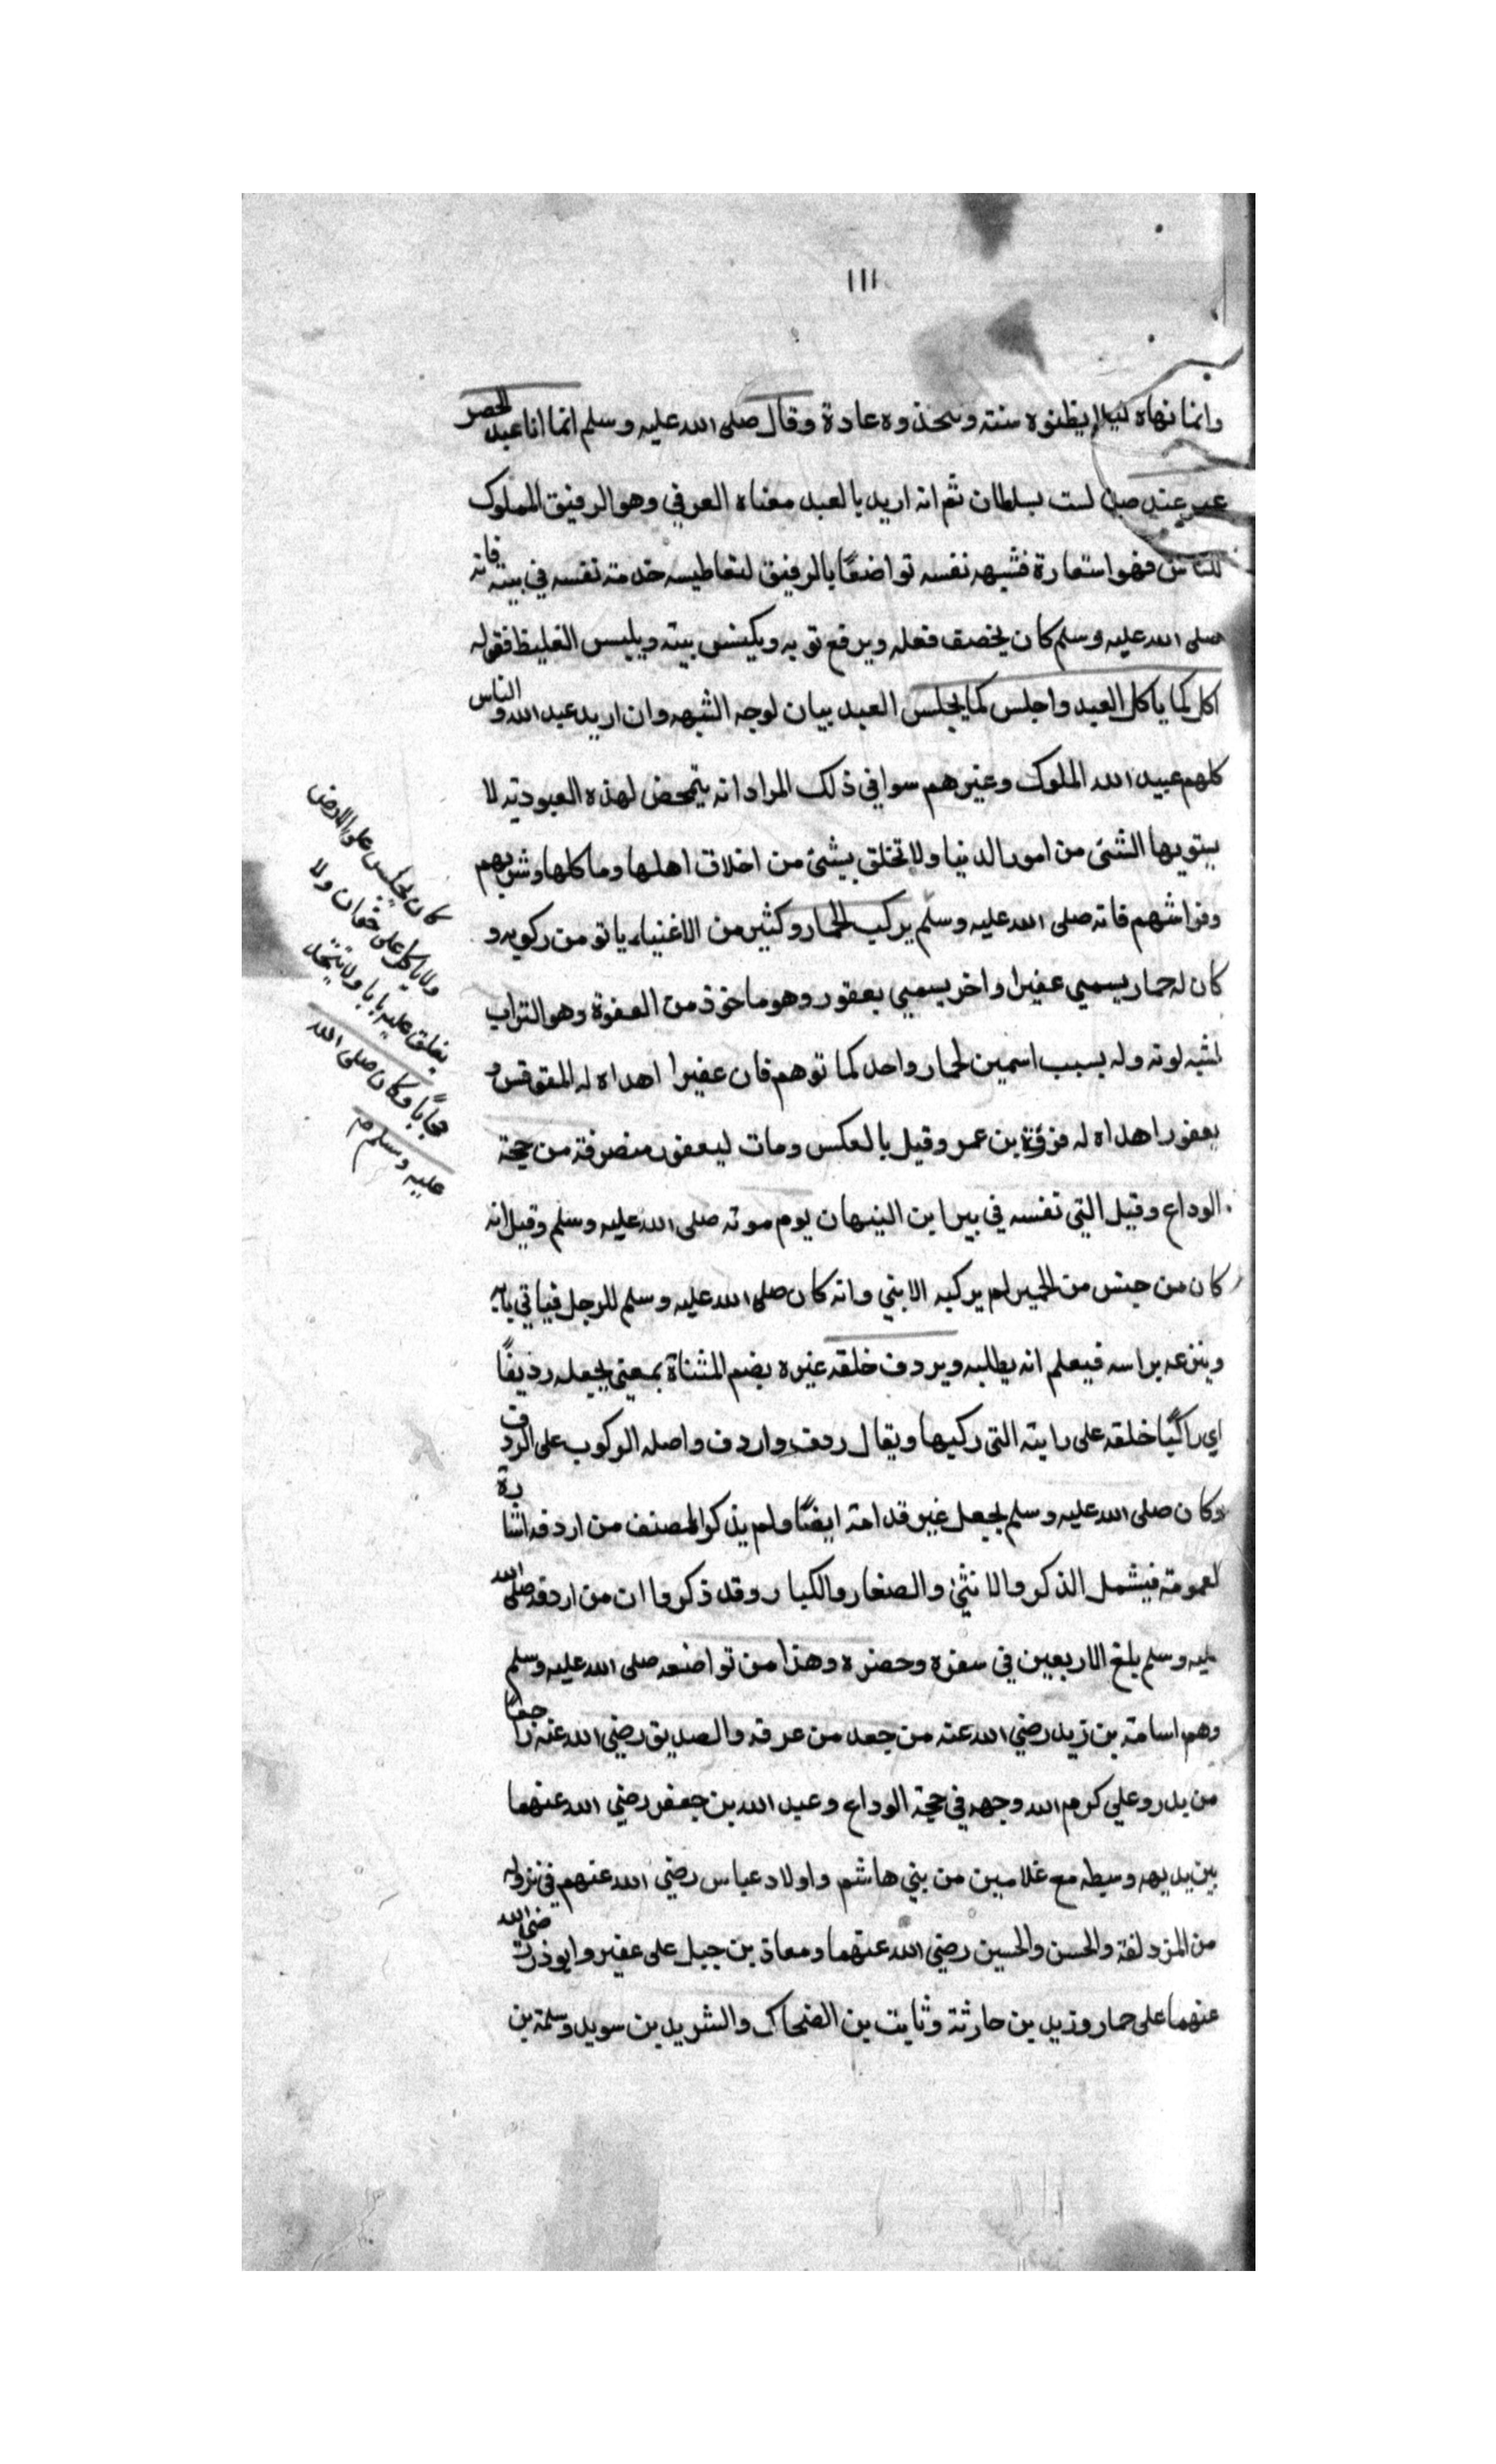 ١١١
وانما نهاه ليلا يظنوه سنته ويتخذوه عادة وقال صلى الله عليه وسلم انما انا عبد الحصر
لست بسلطان ثم انه اريد بالعبد معناه العرفي وهو الرفيق المملوك
للناس فهو استعارة فشبهه نفسه تواضعًا بالرفيق لتعاطيه خدمته نفسه في بيته فانه
صلى الله عليه وسلم كان يخصف فعله ويرفع ثوبه ويكنس بيته ويلبس الغليظ فقوله
اكل كما ياكل العبد واجلس كما يجلس العبد بيان لوجه الشبهه وان اريد عبد الله والناس
كلهم عبيد الله الملوك وغيرهم سوا في ذلك المراد انه يتمحض لهذه العبودية لا
يبتويها الشئ من امور الدنيا ولا تخلق بيشئ من اخلاق اهلها وماكلها وشربهم
وفراشهم فانه صلى الله عليه وسلم يركب الحمار وكثير من الاغنياء ياتو من ركوبه و
كان له حمار يسمى عفيرا واخر يسمى يعفور وهو ماخوذ من العفرة وهو التراب
لشبه لونه وله بسبب اسمين لحمار واحد كما توهم فان عفيرا اهداه له المقوقس و
يعفور اهداه له فروة بن عمرو وقيل بالعكس ومات ليعفور منصرفة من حجة
الوداع وقيل التي نفسه في بير ابن التيهان يوم موته صلى الله عليه وسلم وقيل انه
كان من جنس من الحمير لم يركبه الا بني وانه كان صلى الله عليه وسلم للرجل فياتي بابه
وينزعه براسه فيعلم انه يطلبه ويردف خلقه غيره بضم المثناة بمعنى يجعله رديفًا
اي راكبًا خلقه على رايته التى ركبها ويقال ردف واردف واصله الركوب على الردف
وكان صلى الله عليه وسلم يجعل غير قدامه ايضًا ولم يذكر المصنف من اردفه اشارة
لعمومته فيشمل الذكر والانثى والصغار والكبار وقد ذكروا ان من اردفه صلى الله
عليه وسلم بلغ الاربعين في سفره وحضره وهذا من تواضعه صلى الله عليه وسلم
وهم اسامة بن زيد رضي الله عنه من جعد من عرفه والصديق رضي الله عنه راجعًا
من بدر وعلي كرم الله وجهه في حجة الوداع وعبد الله بن جعفر رضي الله عنهما
بين يديه وسبطه مع غلامين من بني هاشم واولاد عباس رضي الله عنهم في نزوله
من المزدلفة والحسن والحسين رضي الله عنهما ومعاذ بن جبل على عفير وابوذر رضي الله
عنهما على حمار وزيد بن حارثة وثابت بن الضحاك والشريد بن سويد وسلمة بن
كان يجلس على الارض
ولا ياكل على خوان ولا
يغلق عليه بابا ولا يتخذ
حجابًا وكان صلى الله
عليه وسلم صه